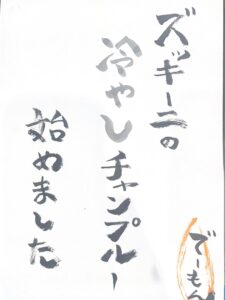 ズッキーニの
冷やしチャンプルー
始めました
でーもん